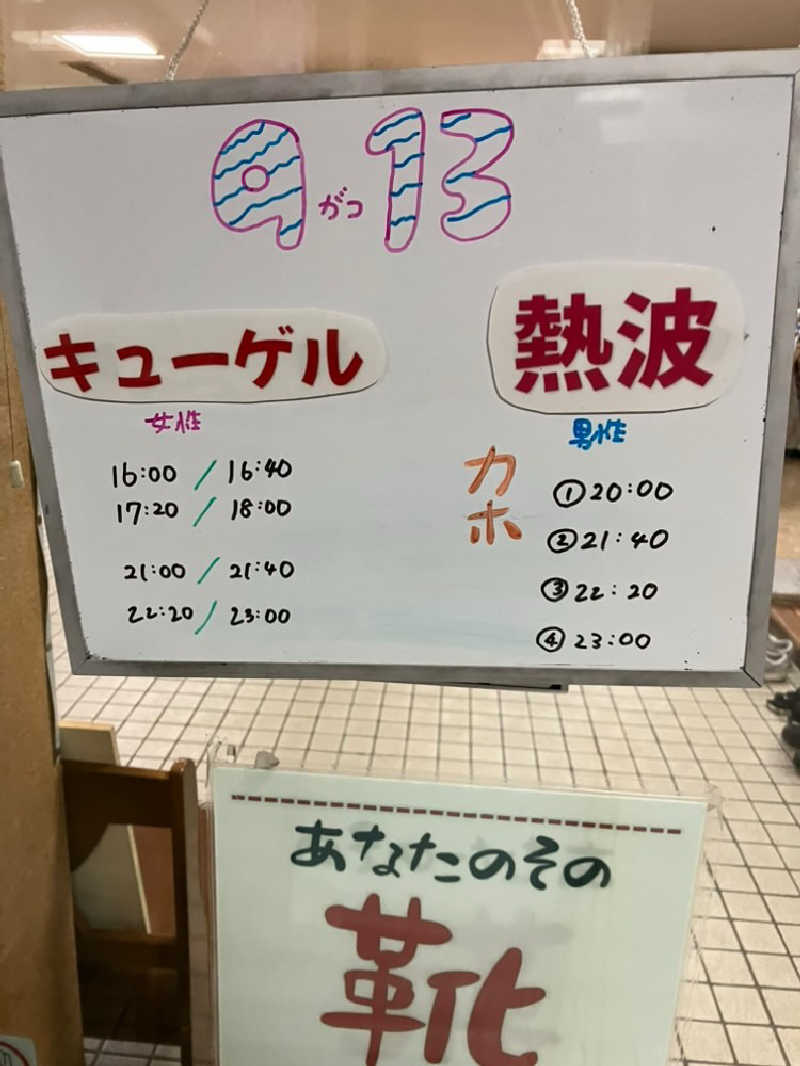 9がつ13
キューゲル
女性
16:00 / 16:40
17:20 / 18:00
21:00 / 21:40
22:20 / 23:00
熱波
男性
カホ
①20:00
②21:40
③22:20
④23:00
あなたのその
靴